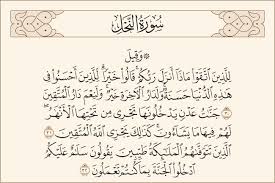 سُورَةُ النَّحْلِ
۞ وَقِيلَ
لِلَّذِينَ اتَّقَوْا مَاذَا أَنزَلَ رَبُّكُمْ قَالُوا خَيْرًا لِّلَّذِينَ أَحْسَنُوا فِي
هَٰذِهِ الدُّنْيَا حَسَنَةٌ وَلَدَارُ الْآخِرَةِ خَيْرٌ وَلَنِعْمَ دَارُ الْمُتَّقِينَ
٣٠ جَنَّاتُ عَدْنٍ يَدْخُلُونَهَا تَجْرِي مِن تَحْتِهَا الْأَنْهَارُ
لَهُمْ فِيهَا مَا يَشَاءُونَ كَذَٰلِكَ يَجْزِي اللَّهُ الْمُتَّقِينَ ٣١
الَّذِينَ تَتَوَفَّاهُمُ الْمَلَائِكَةُ طَيِّبِينَ يَقُولُونَ سَلَامٌ عَلَيْكُمُ
ادْخُلُوا الْجَنَّةَ بِمَا كُنتُمْ تَعْمَلُونَ ٣٢